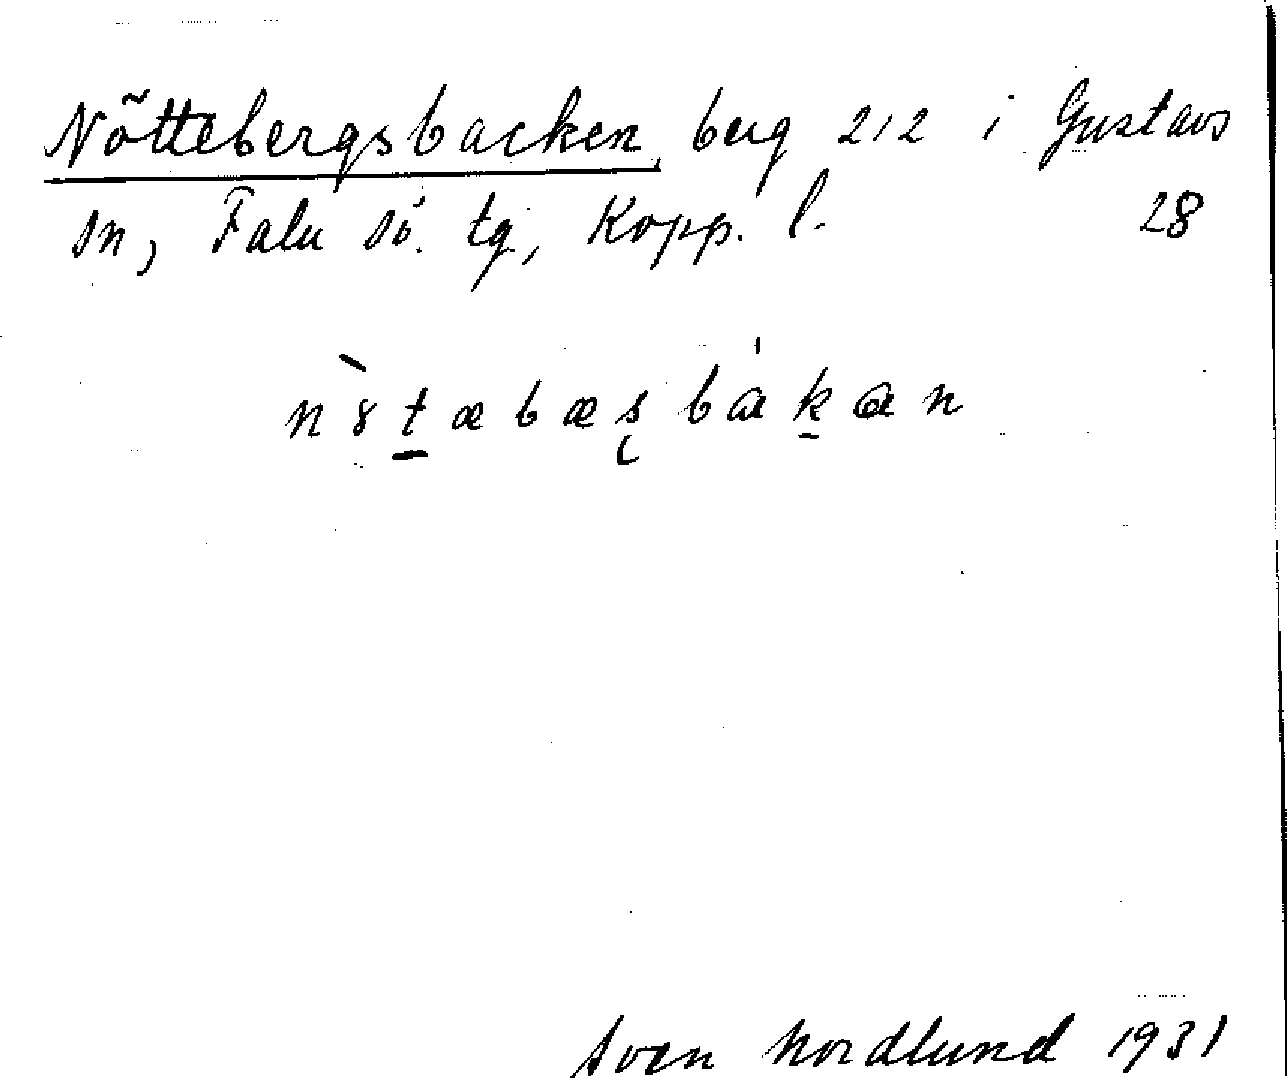 Nöttebergsbacken, berg 212 i Gustavs
sn, Falu sö. tg, Kopp. l. 28
n ȣ̀ t̠ æ b æ ʂ b á k̠ a n
Sven Nordlund 1931